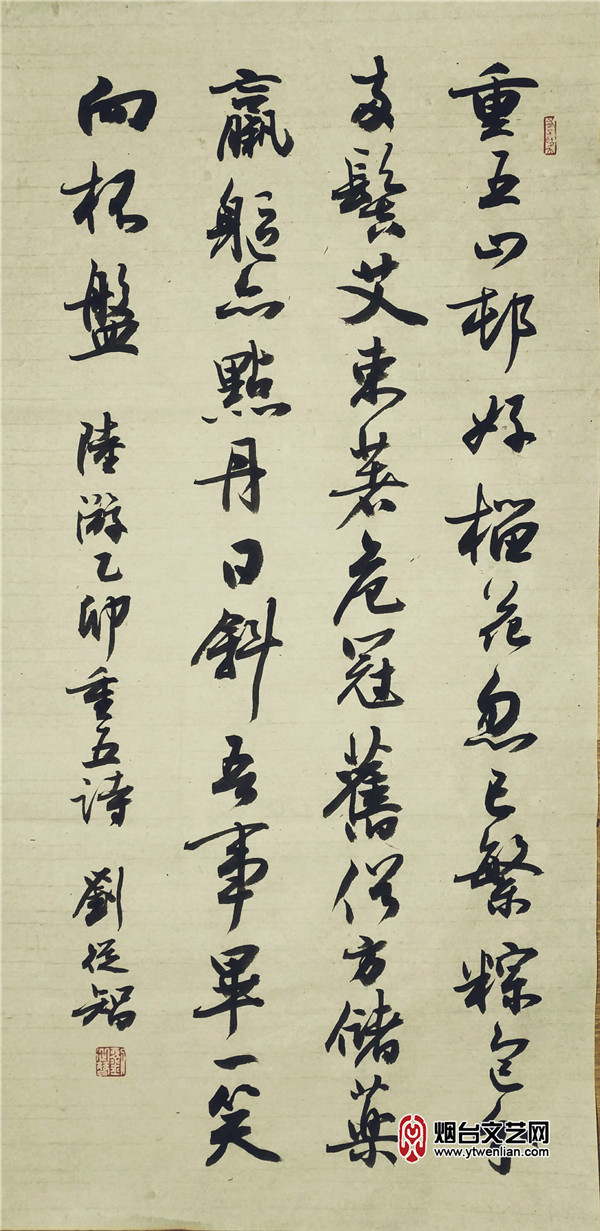 重五山邨好榴花忽已繁粽包分
兩髻艾束著危冠舊俗方儲藥
羸軀亦點丹日斜吾事畢一笑
向杯盤 陸游乙卯重五詩 劉從智
烟台文艺网
www.ytwenlian.com